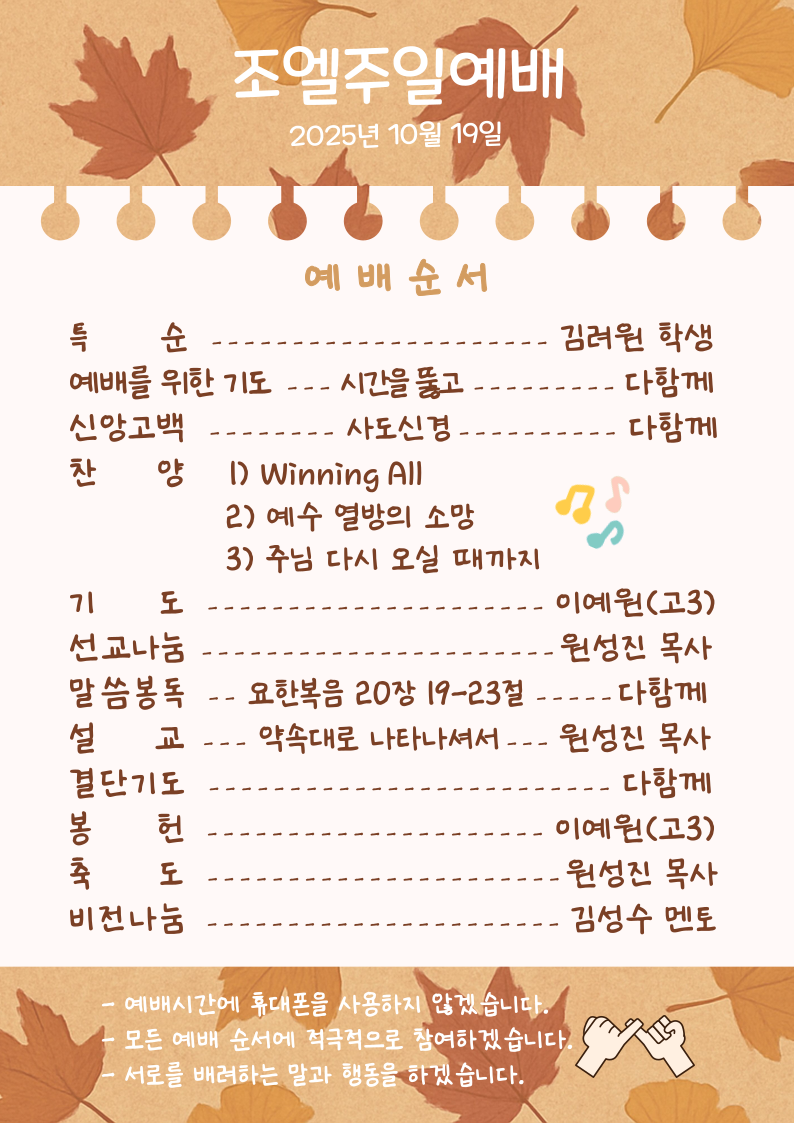 조엘주일예배
2025년 10월 19일
예 배 순 서
특 순 --------------------- 김려원 학생
예배를 위한 기도 --- 시간을 뚫고 --------- 다함께
신앙고백 -------- 사도신경 ---------- 다함께
찬 양 1) Winning All
2) 예수 열방의 소망
3) 주님 다시 오실 때까지
기 도 --------------------- 이예원(고3)
선교나눔 ---------------------- 원성진 목사
말씀봉독 -- 요한복음 20장 19-23절 ----- 다함께
설 교 --- 약속대로 나타나셔서 --- 원성진 목사
결단기도 ------------------------- 다함께
봉 헌 --------------------- 이예원(고3)
축 도 ---------------------- 원성진 목사
비전나눔 ---------------------- 김성수 멘토
- 예배시간에 휴대폰을 사용하지 않겠습니다.
- 모든 예배 순서에 적극적으로 참여하겠습니다.
- 서로를 배려하는 말과 행동을 하겠습니다.